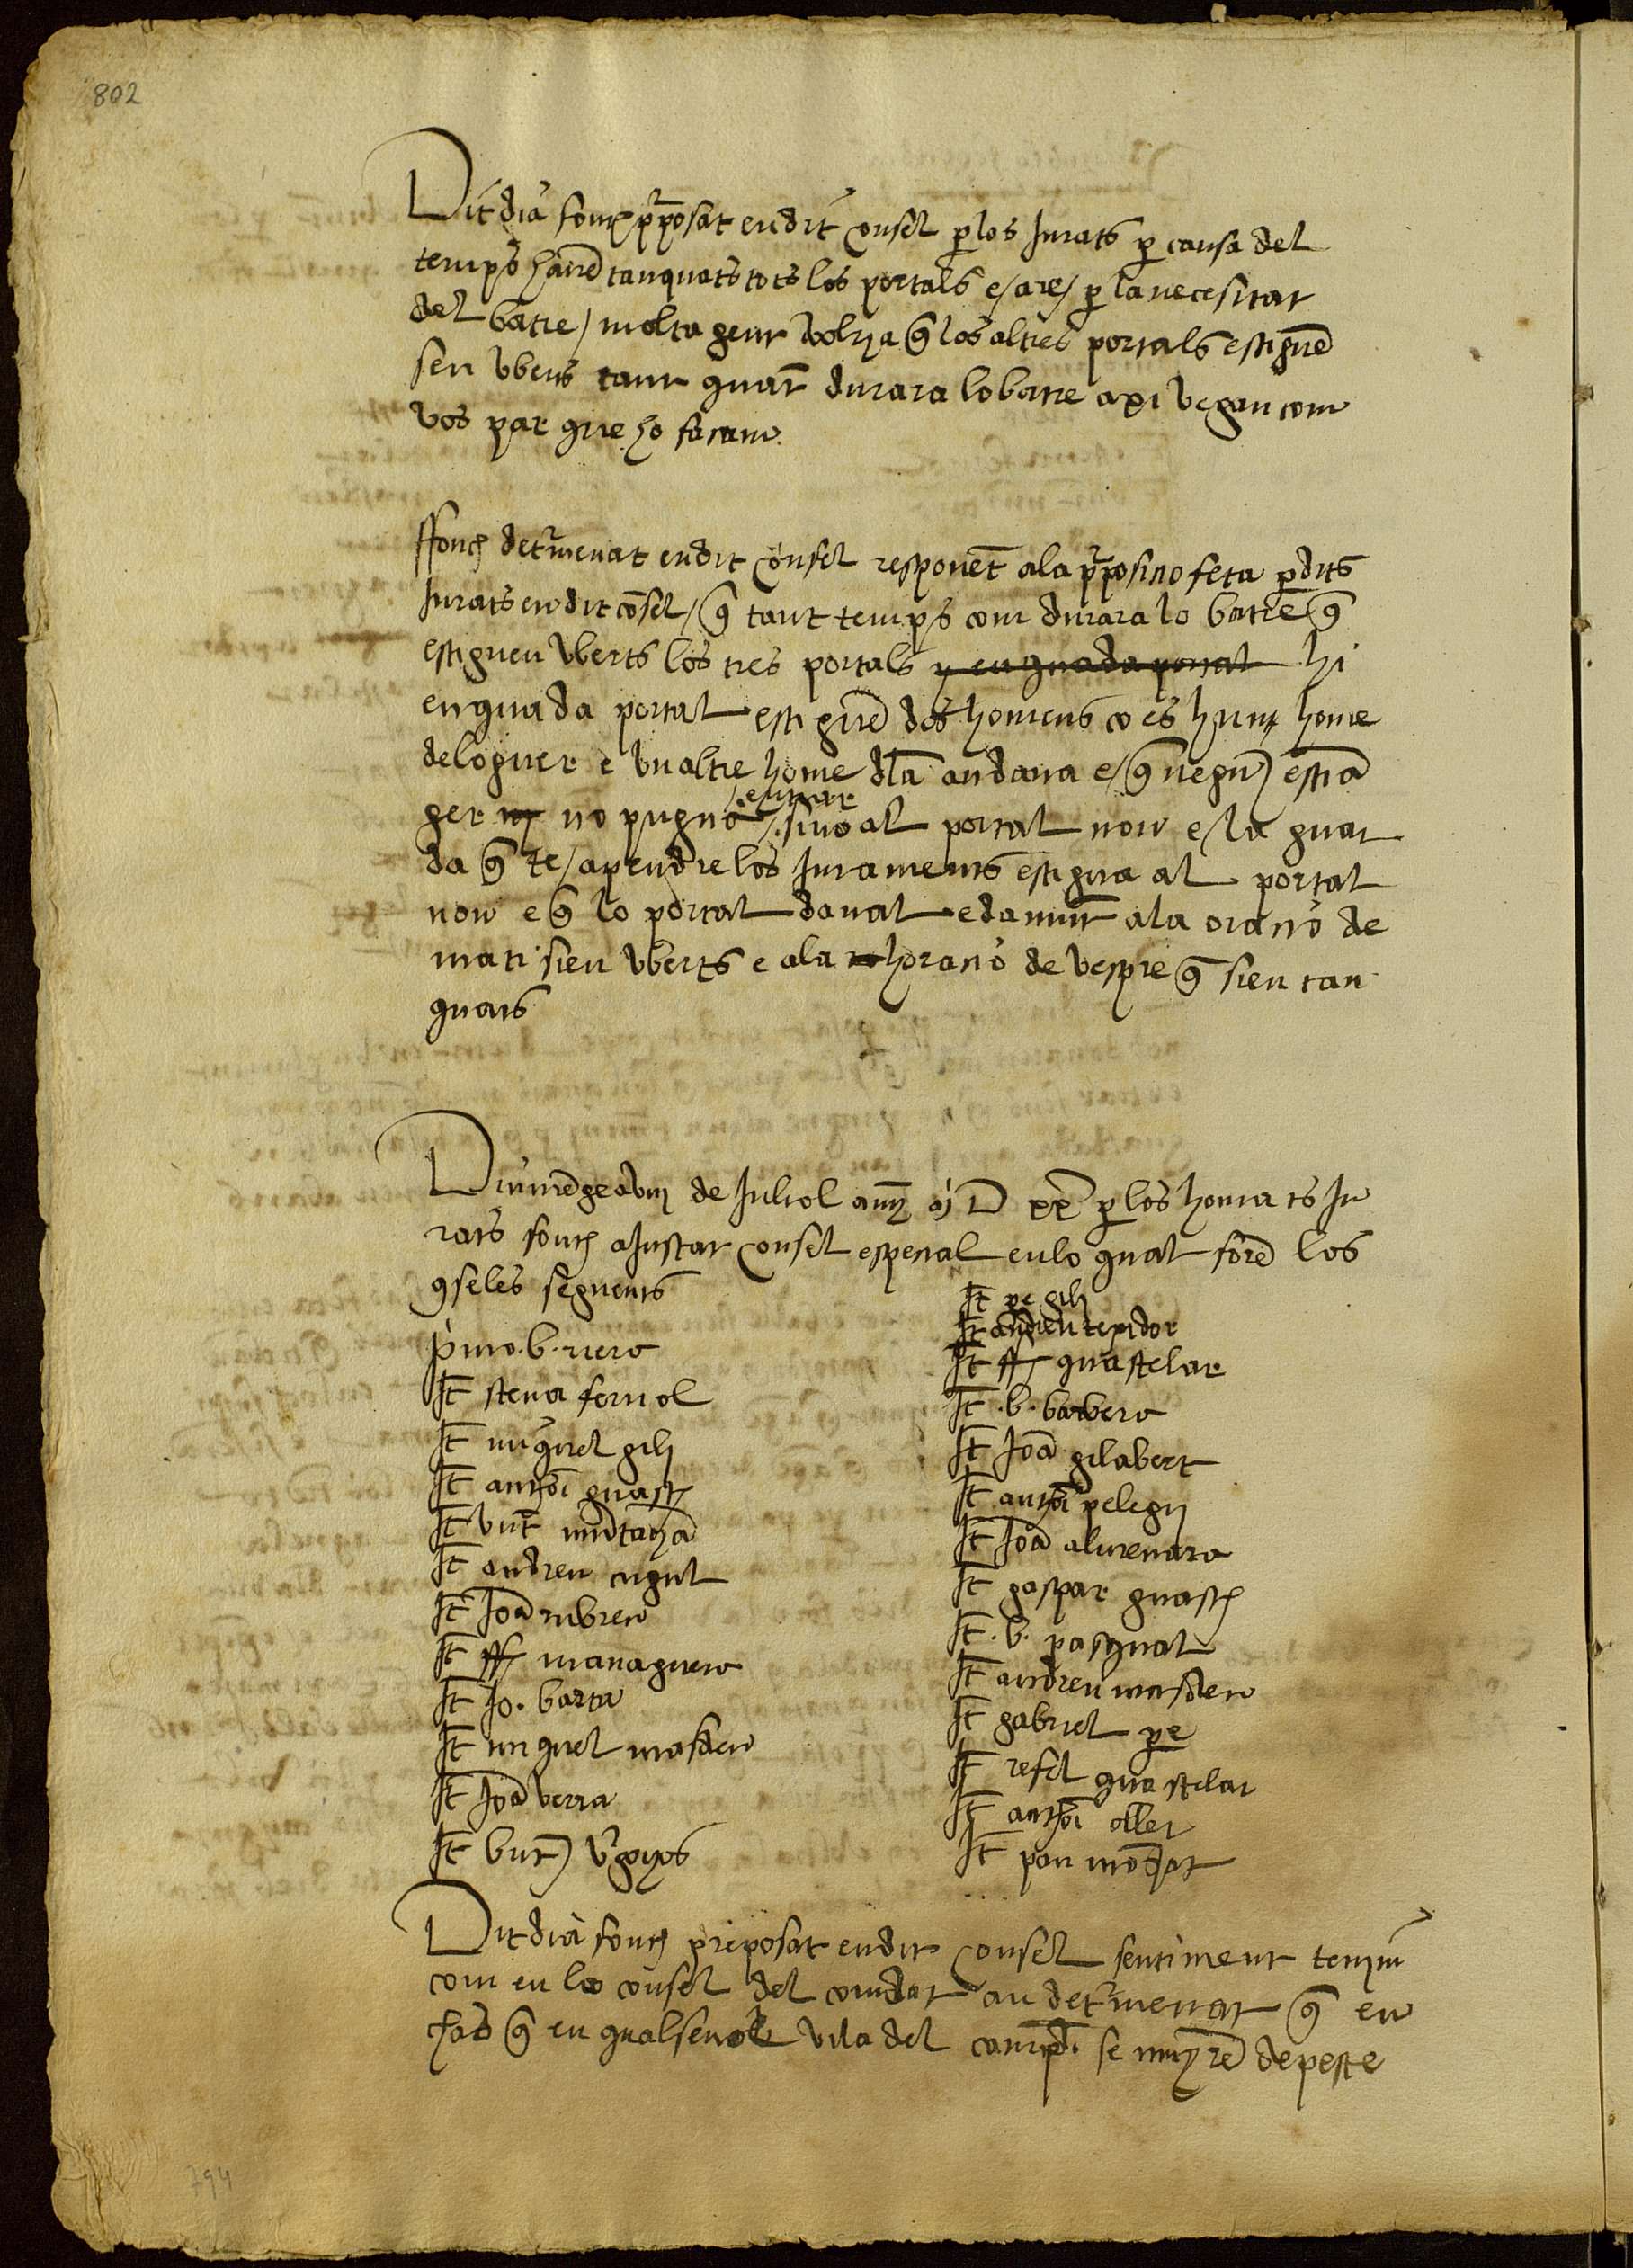 802
Dit dia fonch pposat en dit consel p los Jurats p causa del
temps havē tanquats tots los portals e/are/ p la necesitat
del batre/ molta gent volrja q̄ los altres portals estiguē
sen vberts tant quāt durara lo batre axi vegan com
vos par que ho facam
ffonch det'menat en dit consel responēt ala pposicio feta p dits
Jurats en dit cōsel/ q̄ tant temps com durara lo batre q̄
estiguen vberts los tres portals y en quada portal hi
en quada portal estiguē dos homens co es hum home
de loguer e vn altre home dla andana e/ q̄ negu estrā
ger no pugnē entrar sino al portal nou e/la guar
da q̄ te/apendre los Juraments estigua al portal
nou e q̄ lo portal daual e damūt ala oracio de
mati sien vberts e ala horacio de vespre q̄ sien tan
quats
Diumēge a viij de Juliol any Mj D xx p los honrats Ju
rats fonch aJustat consel especial en lo qual forē los
9seles seguents
pmo .b. riero
It steva fornol
It miquel gilj
It anthoi guasch
It vnt mūtanȳa
It andreu cugul
It Joā rubreu
It ffc managuero
It Jo. barta
It miquel masdeu
It Joā verra
It vnt vgijos
It pe gilj
It andreu texidor
It ffc quastelar
It .b. barbero
It Joā gilabert
It anthoi pelegrj
It Joā almenara
It gaspar guasch
It .b. pasqual
It andreu masdeu
It gabriel pe
It rafel quastelar
It anthoi oller
It pau mōtjat
Dit dia fonch preposat en dit consel sentiment tenim
com en lo consel del comdat an det'menat q̄ en
cas q̄ en qualsevol vila del camp di se muyrē de peste
794